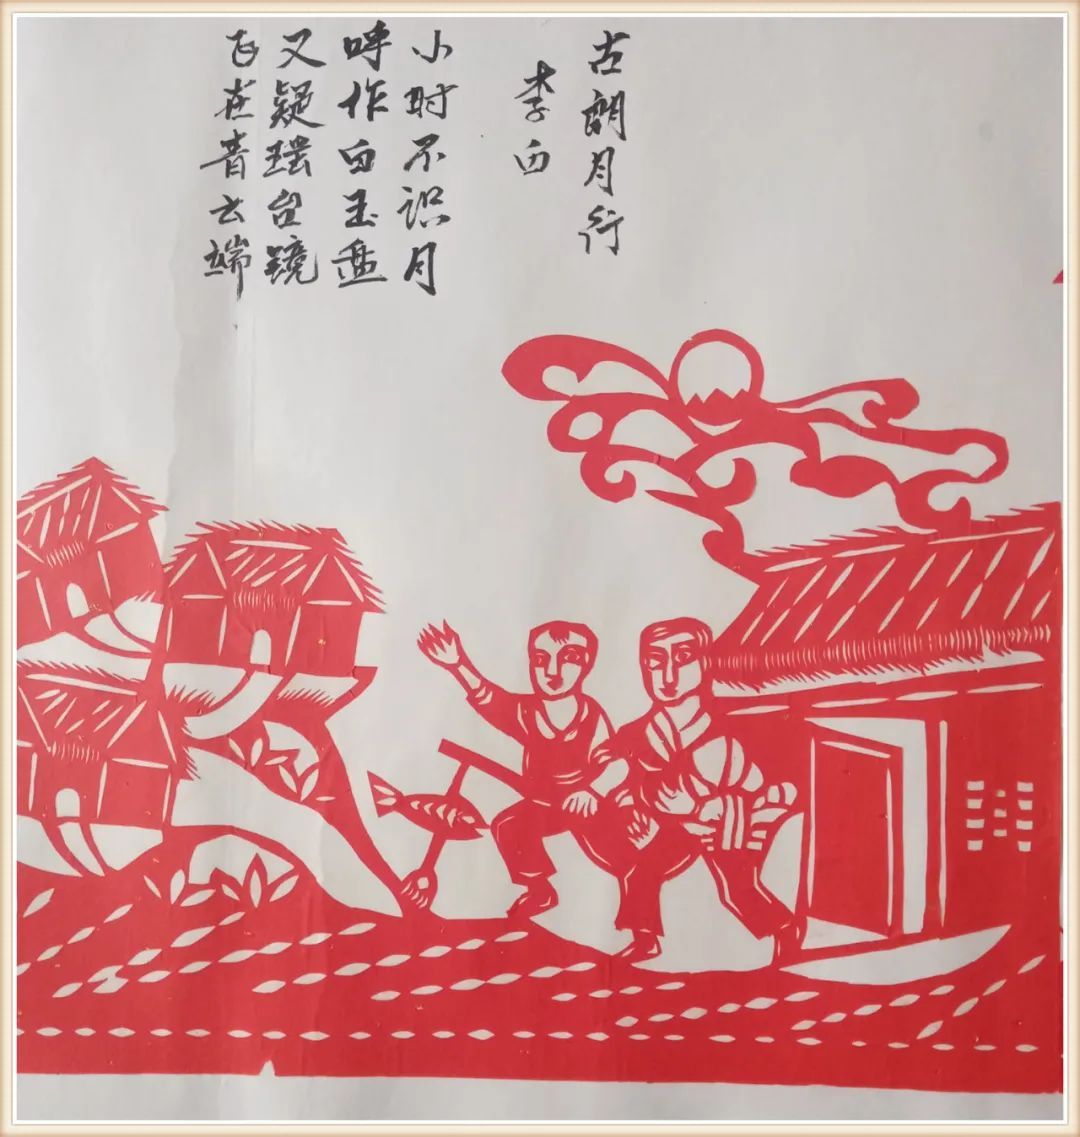 古朗月行
李白
小时不识月
呼作白玉盘
又疑瑶台镜
飞在青云端